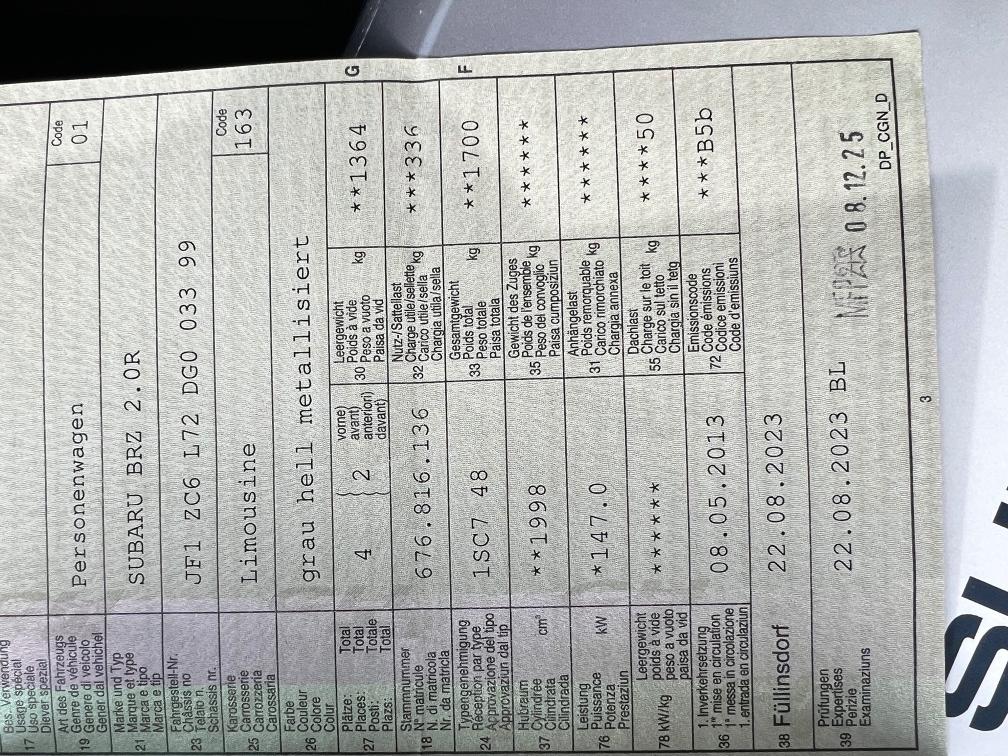 17
Bes. Verwendung
Usage spécial
Uso speciale
Diever spezial
19
Art des Fahrzeugs
Genre de véhicule
Genere di veicolo
Gener dal vehichel
Personenwagen
Code
01
21
Marke und Typ
Marque et type
Marca e tipo
Marca e tip
SUBARU BRZ 2.0R
23
Fahrgestell-Nr.
Châssis no
Telaio n.
Schassis nr.
JF1 ZC6 L72 DG0 033 99
25
Karosserie
Carrosserie
Carrozzeria
Carossaria
Limousine
Code
163
26
Farbe
Couleur
Colore
Colur
grau hell metallisiert
27
Plätze: Total
Places: Total
Posti: Totale
Plazs: Total
4
2
vorne)
avant)
anteriori)
davant)
30
Leergewicht
Poids à vide
Peso a vuoto
Paisa da vid
kg
**1364
G
18
Stammnummer
N° matricule
N. di matricola
Nr. da matricla
676.816.136
32
Nutz-/Sattellast
Charge utile/sellette
Carico utile/sella
Chargia utila/sella
kg
***336
24
Typengenehmigung
Réception par type
Approvazione del tipo
Approvaziun dal tip
1SC7 48
33
Gesamtgewicht
Poids total
Peso totale
Paisa totala
kg
**1700
F
37
Hubraum
Cylindrée
Cilindrata
Cilindrada
cm³
**1998
35
Gewicht des Zuges
Poids de l'ensemble
Peso del convoglio
Paisa cumposiziun
kg
******
76
Leistung
Puissance
Potenza
Prestaziun
kW
*147.0
31
Anhängelast
Poids remorquable
Carico rimorchiato
Chargia annexa
kg
******
78 kW/kg
Leergewicht
poids à vide
peso a vuoto
paisa da vid
******
55
Dachlast
Charge sur le toit
Carico sul tetto
Chargia sin il tetg
kg
****50
36
1. Inverkehrsetzung
1re mise en circulation
1a messa in circolazione
1. entrada en circulaziun
08.05.2013
72
Emissionscode
Code émissions
Codice emissioni
Code d'emissiuns
***B5b
38 Füllinsdorf
22.08.2023
39
Prüfungen
Expertises
Perizie
Examinaziuns
22.08.2023 BL
08.12.25
DP_CGN_D
3